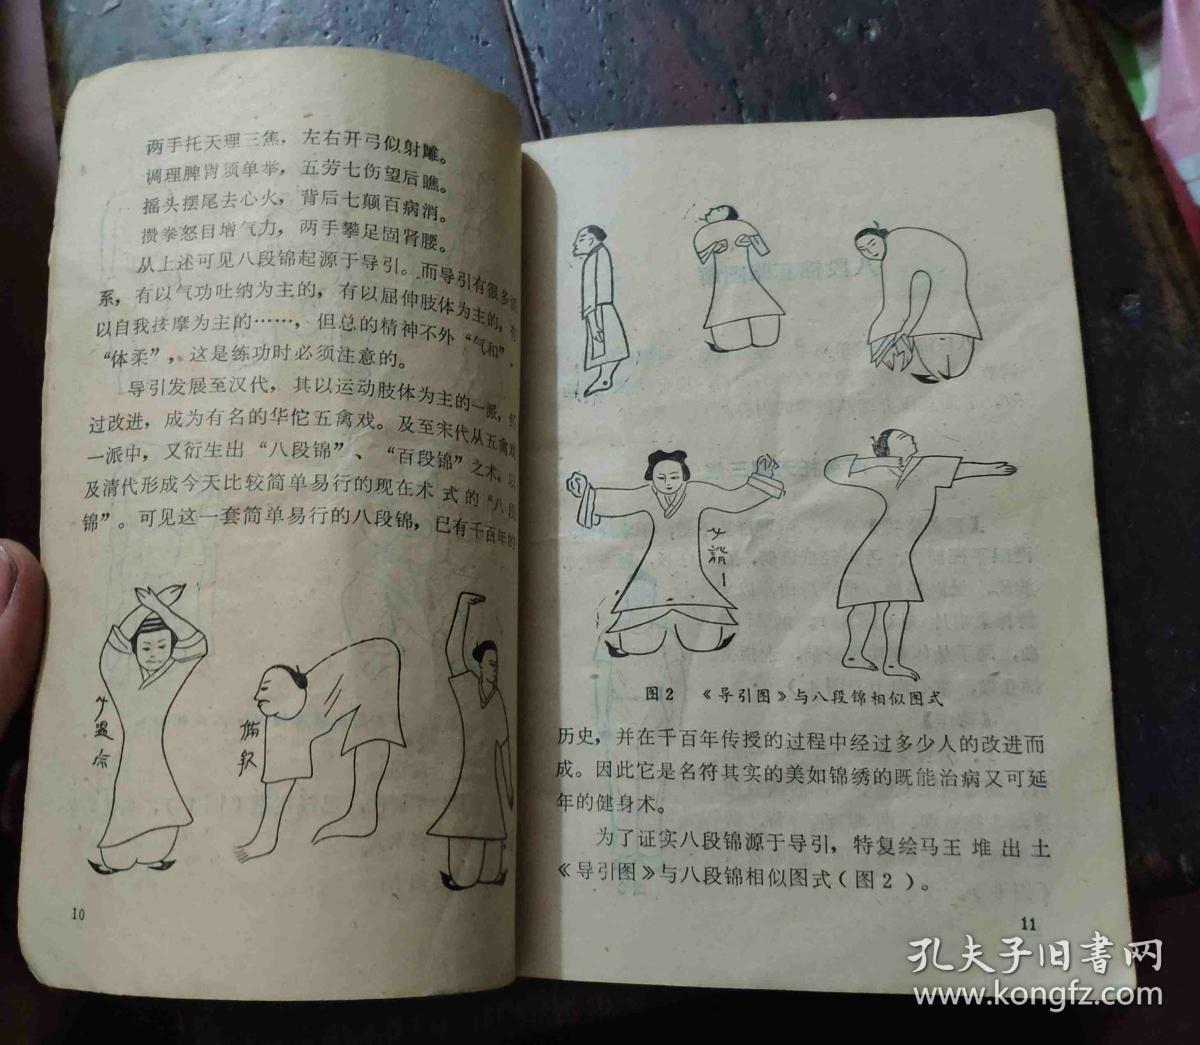 两手托天理三焦，左右开弓似射雕。
调理脾胃须单举，五劳七伤望后瞧。
摇头摆尾去心火，背后七颠百病消。
攒拳怒目增气力，两手攀足固肾腰。
从上述可见八段锦起源于导引。而导引有很多
系，有以气功吐纳为主的，有以屈伸肢体为主的，有
以自我按摩为主的……，但总的精神不外“气和”，
“体柔”，这是练功时必须注意的。
导引发展至汉代，其以运动肢体为主的一派，经
过改进，成为有名的华佗五禽戏。及至宋代从五禽戏
一派中，又衍生出“八段锦”、“百段锦”之术，以
及清代形成今天比较简单易行的现在术式的“八段
锦”。可见这一套简单易行的八段锦，已有千百年的
10
图2 《导引图》与八段锦相似图式
历史，并在千百年传授的过程中经过多少人的改进而
成。因此它是名符其实的美如锦绣的既能治病又可延
年的健身术。
为了证实八段锦源于导引，特复绘马王堆出土
《导引图》与八段锦相似图式（图2）。
11
孔夫子旧书网
www.kongfz.com